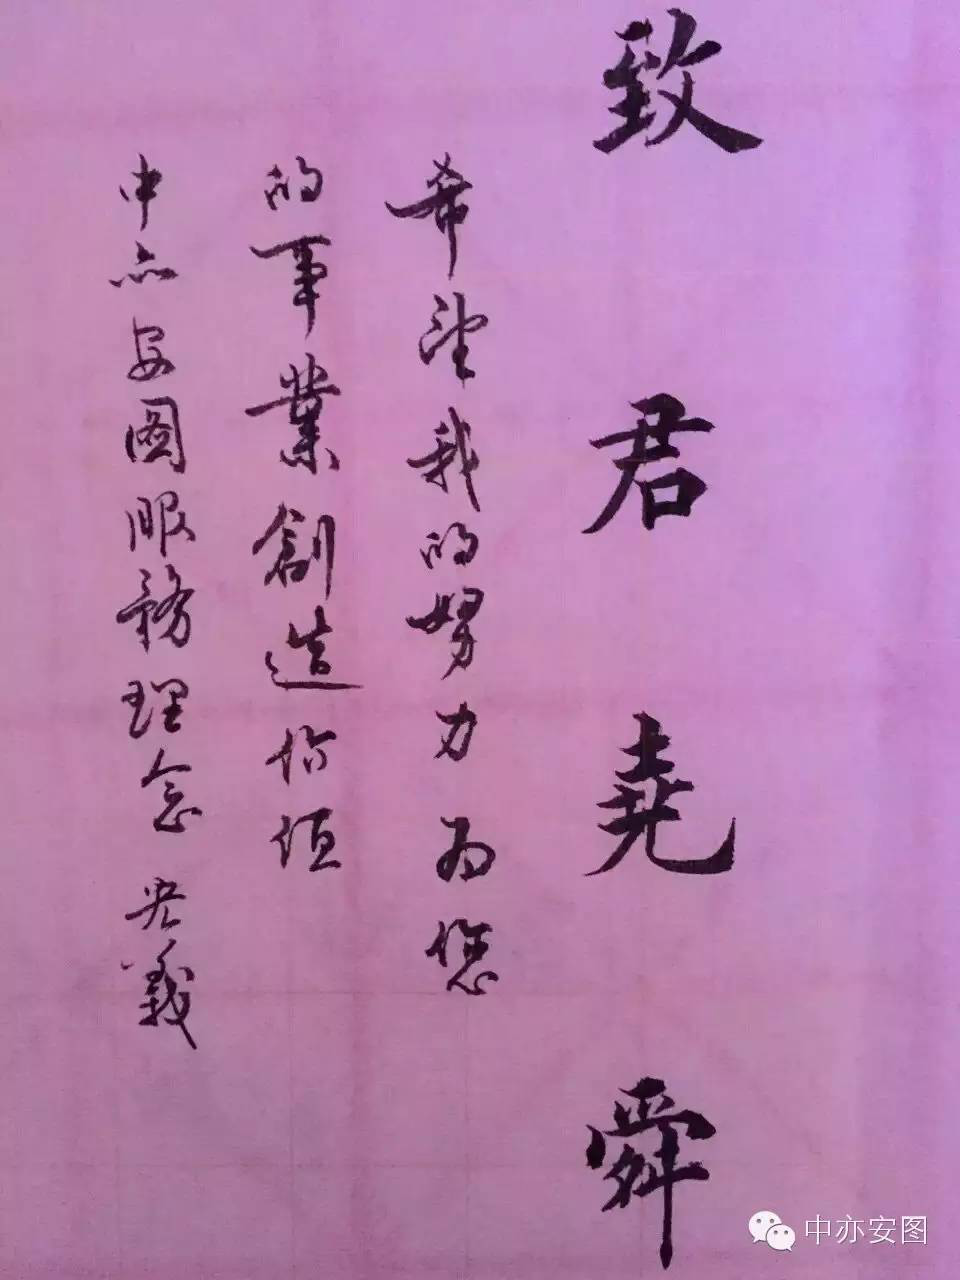 致君堯舜
希望我的努力为您
的事業創造价值
中亦安图服務理念 宏義
中亦安图